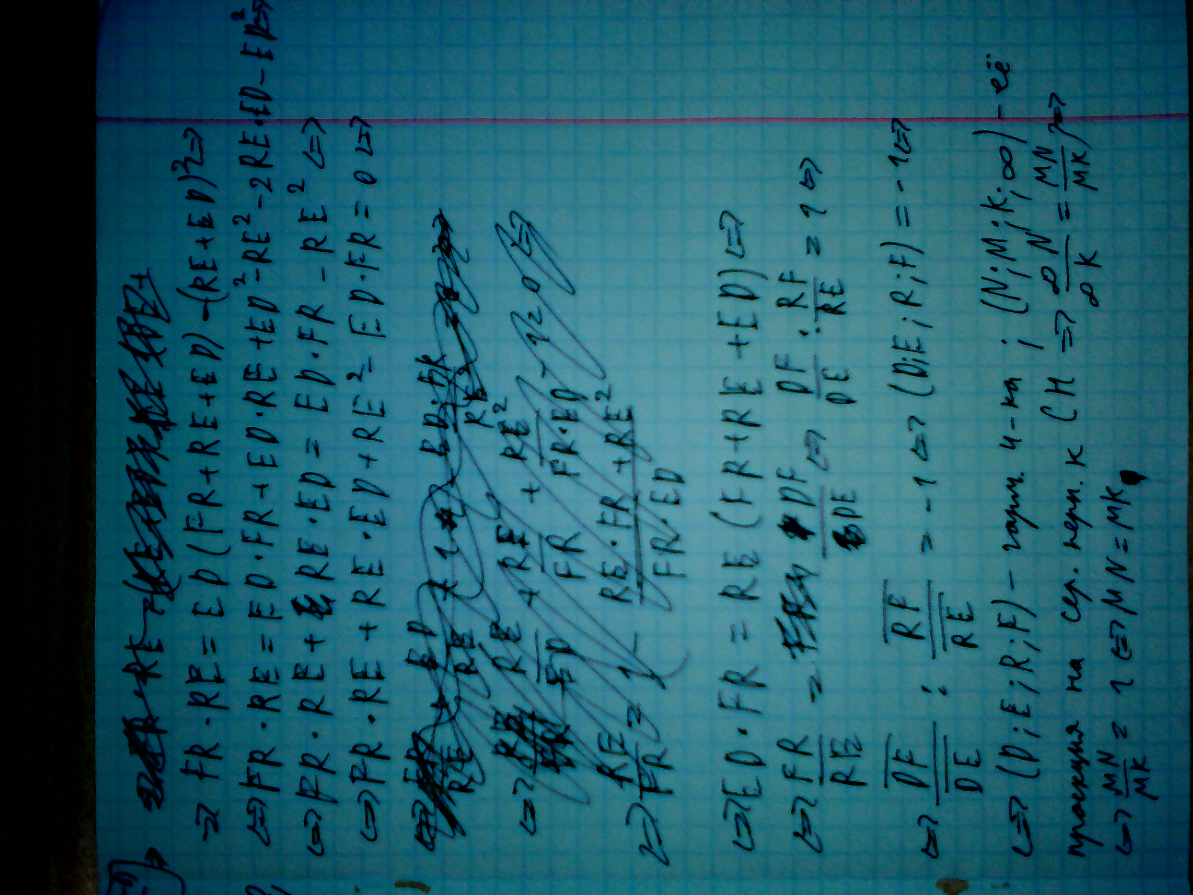 ⇒ FR·RE = ED(FR+RE+ED) -(RE+ED)² ⇔
⇔ FR·RE = ED·FR+ED·RE+ED²-RE²-2RE·ED-ED² ⇔
⇔ FR·RE + RE·ED = ED·FR - RE² ⇔
⇔ FR·RE + RE·ED + RE² - ED·FR = 0 ⇔
⇔ ED·FR = RE(FR+RE+ED) ⇔
⇔ FR/RE = DF/DE ⇔ DF/DE : RF/RE = 1 ⇔
⇔ DF/DE : RF/RE = -1 ⇔ (D;E;R;F) = -1 ⇔
⇔ (D;E;R;F) - гарм. ч-ка; (N;M;K;∞) - её
проекция на сер. перп. к CH ⇒ ∞N/∞K = MN/MK ⇒
⇔ MN/MK = 1 ⇔ MN = MK.